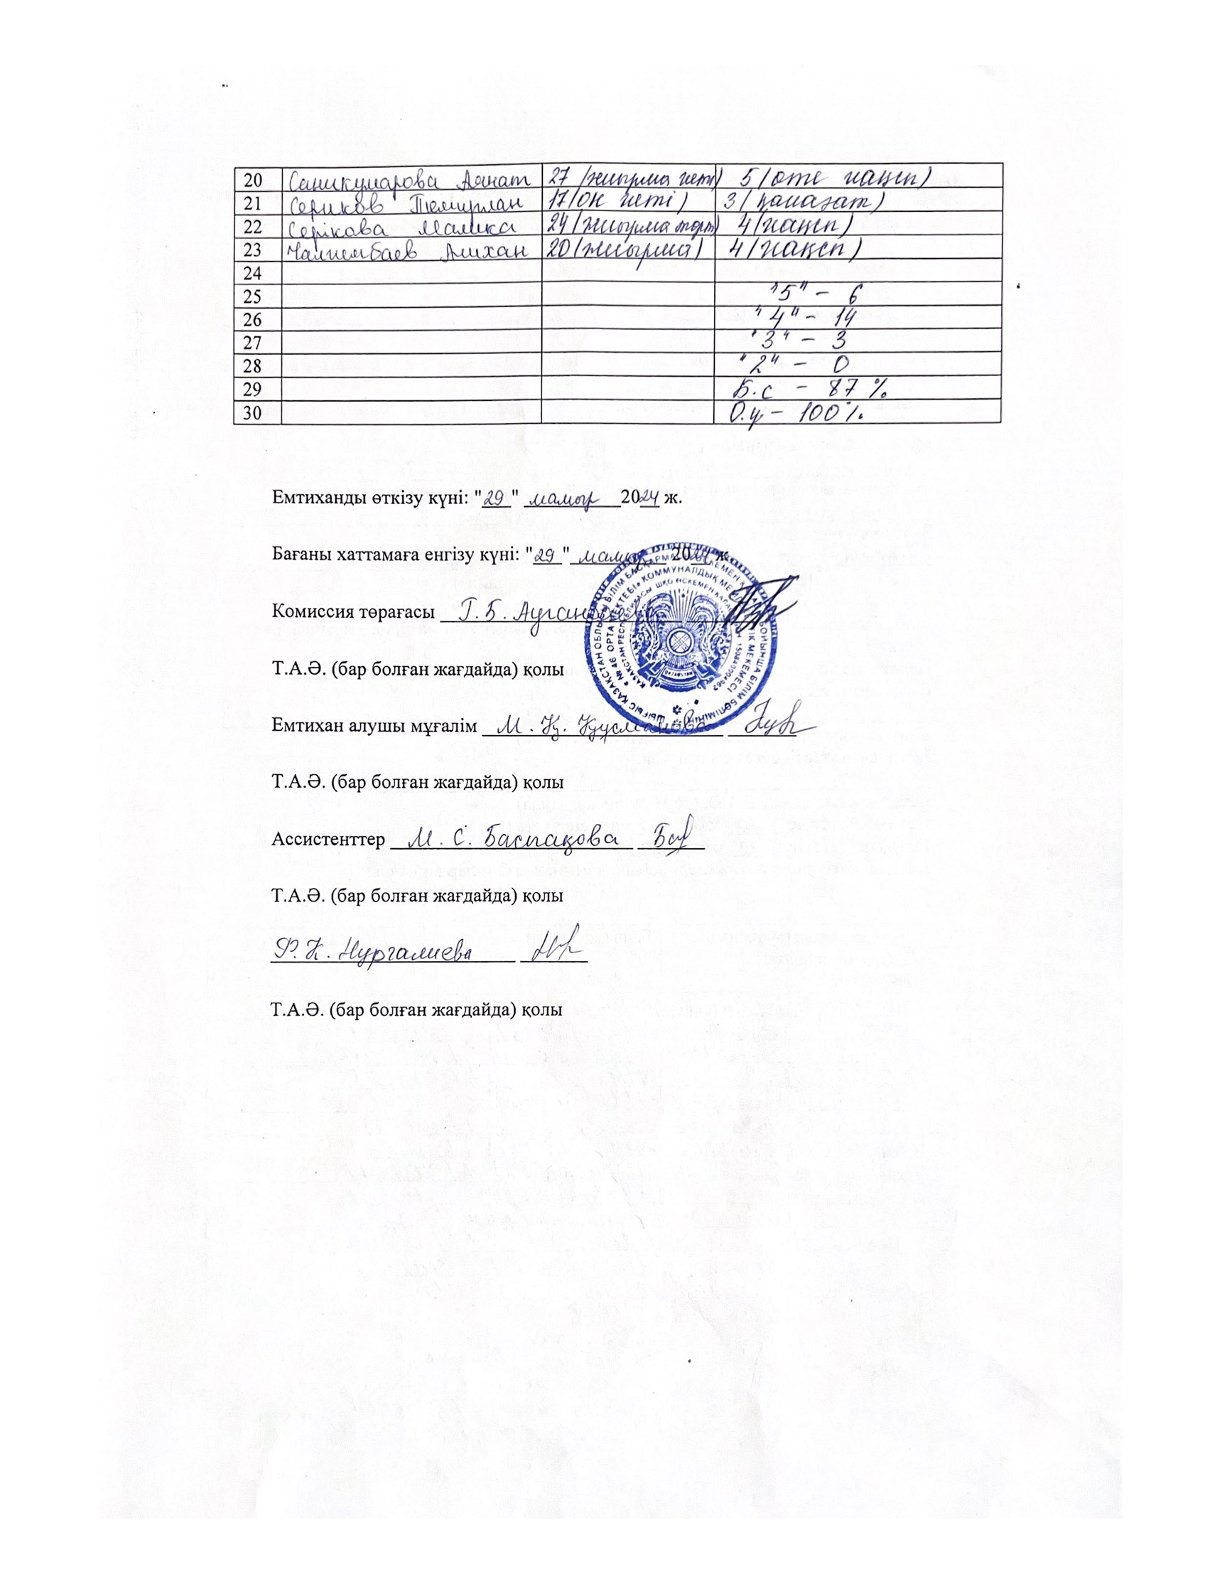 20 Саникумарова Аянат 27 (жиырма жеті) 5 (өте жақсы)
21 Сериков Темирлан 17 (он жеті) 3 (қанағат)
22 Серікова Малика 24 (жиырма төрт) 4 (жақсы)
23 Чалпымбаев Алихан 20 (жиырма) 4 (жақсы)
24
25 "5" – 6
26 "4" – 14
27 "3" – 3
28 "2" – 0
29 Б.с – 87 %
30 О.ү – 100%
Емтиханды өткізу күні: "29" мамыр 2024 ж.
Бағаны хаттамаға енгізу күні: "29" мамыр 2024 ж.
Комиссия төрағасы Г.Б. Ауганбаева
Т.А.Ә. (бар болған жағдайда) қолы
Емтихан алушы мұғалім М.Қ. Құусманова
Т.А.Ә. (бар болған жағдайда) қолы
Ассистенттер М.С. Баспақова
Т.А.Ә. (бар болған жағдайда) қолы
Ф.К. Нургалиева
Т.А.Ә. (бар болған жағдайда) қолы